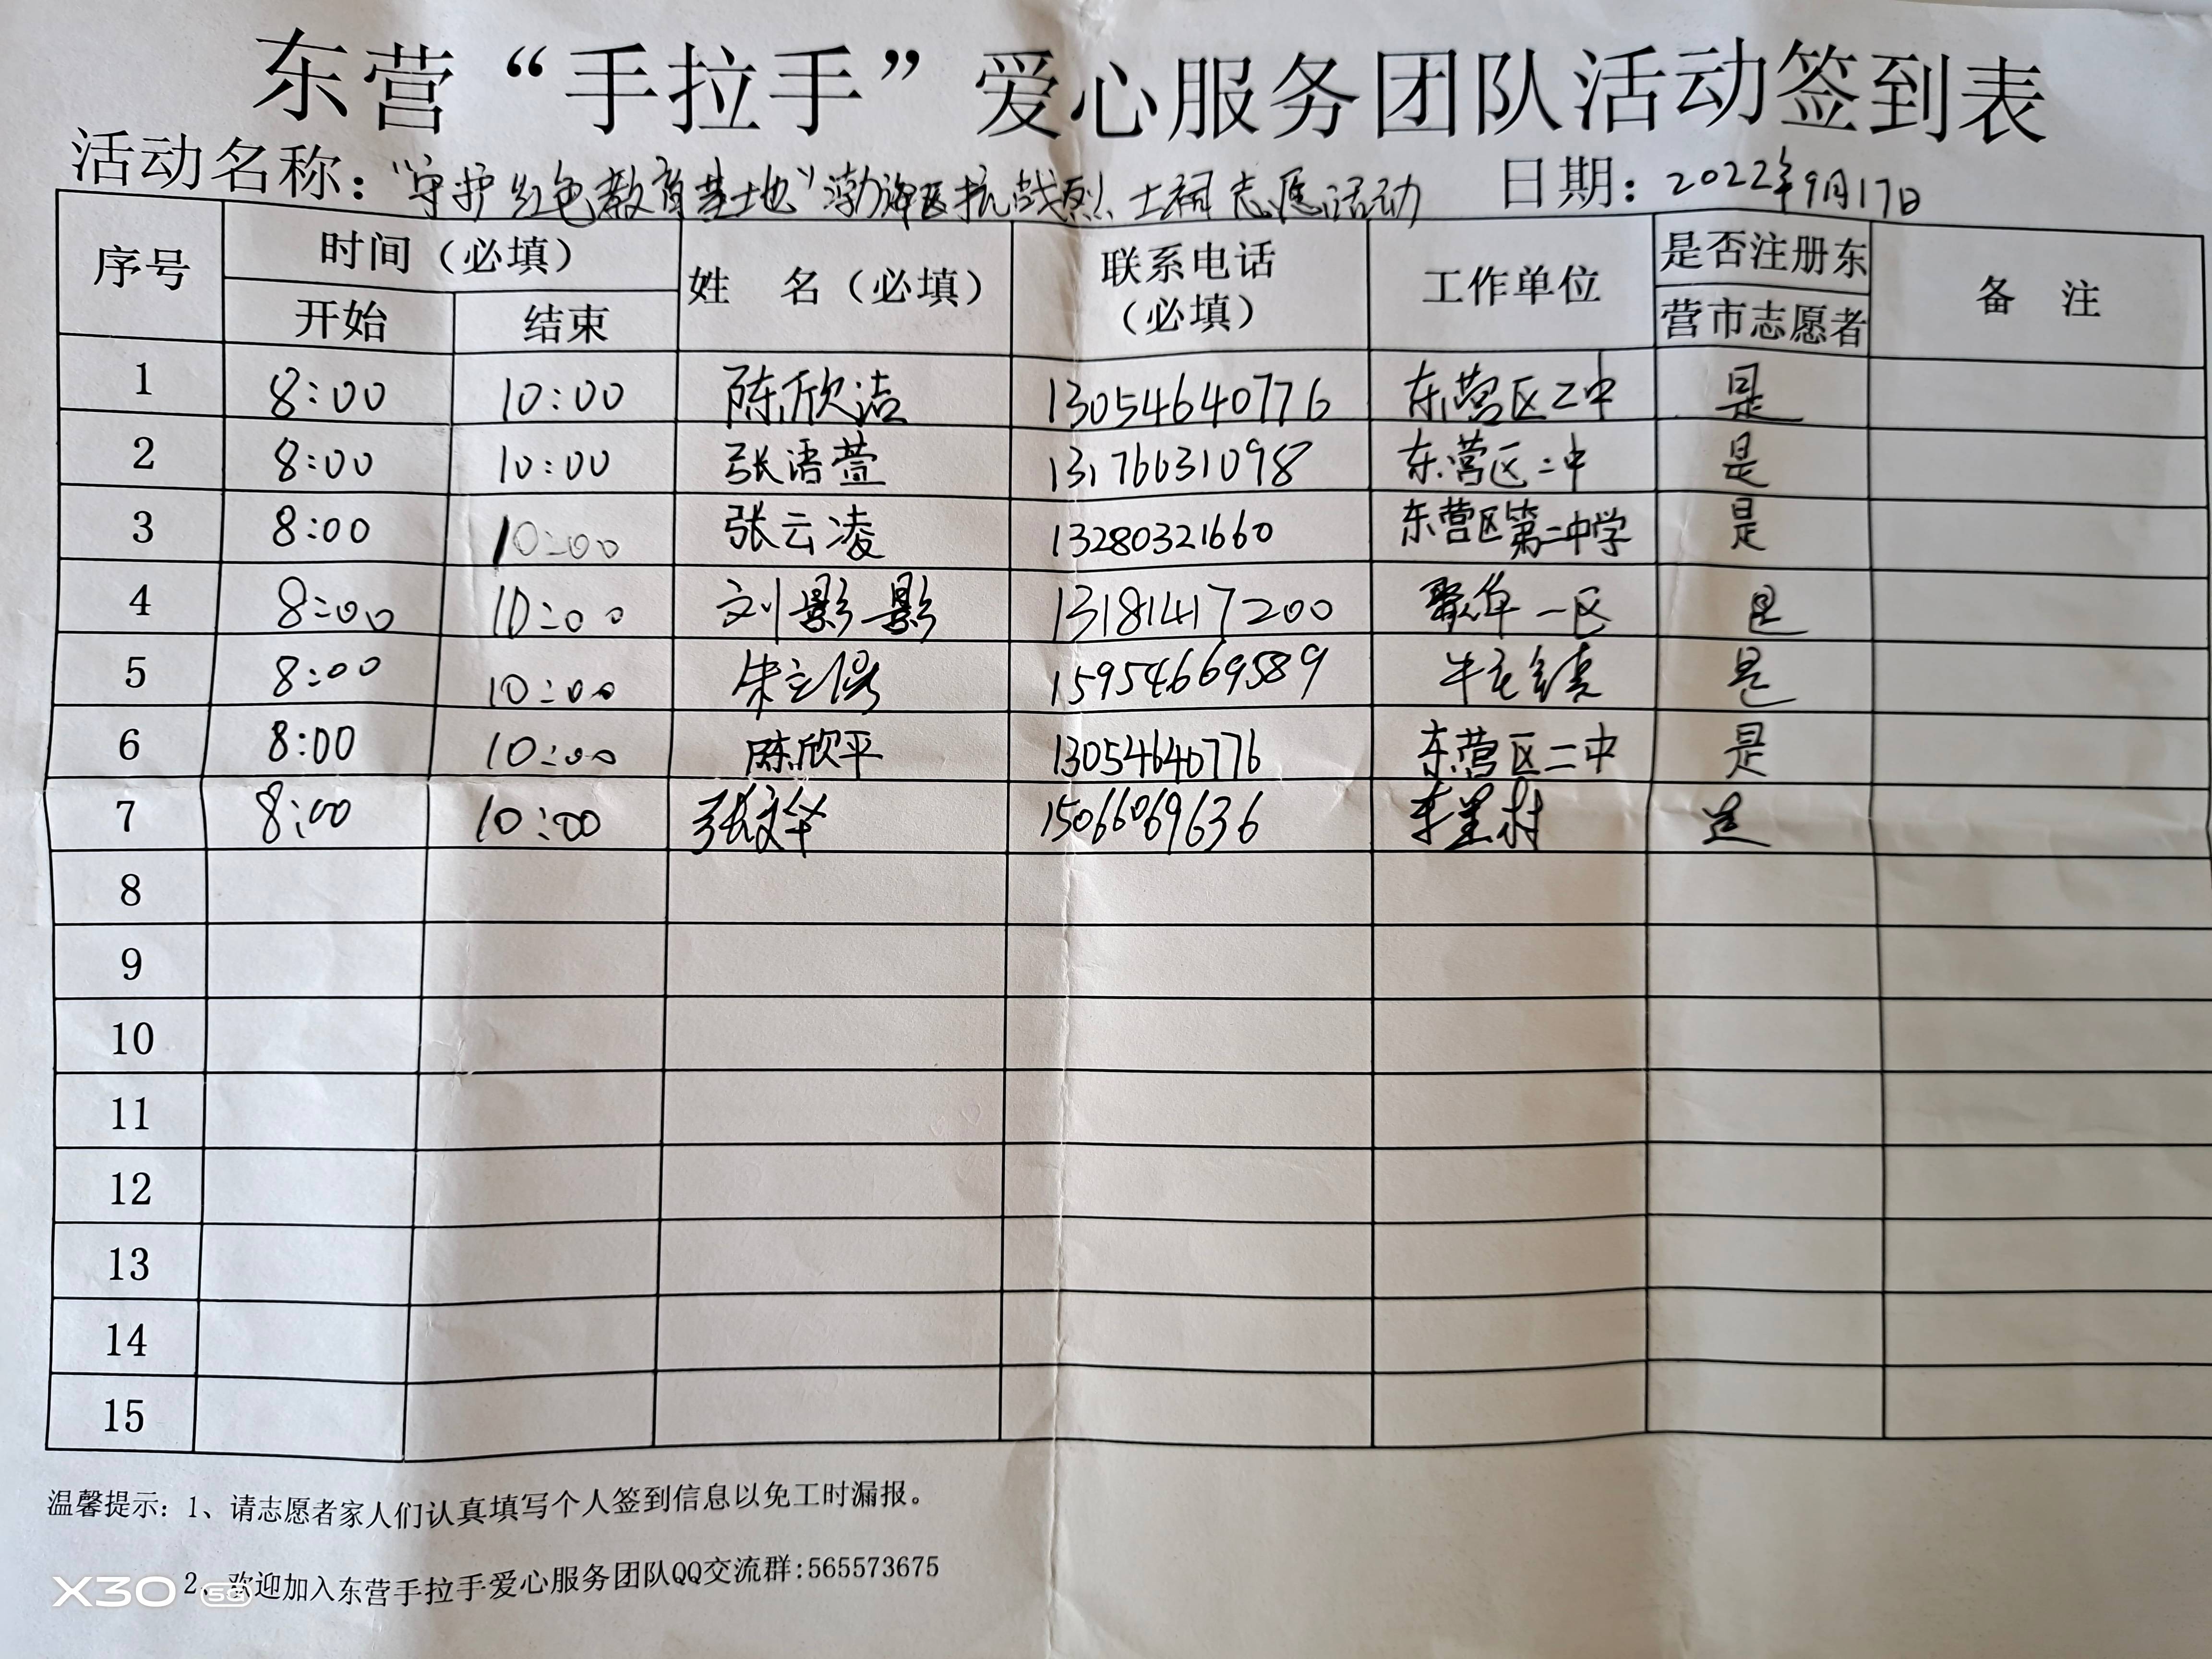 东营“手拉手”爱心服务团队活动签到表
活动名称：“守护红色教育基地”渤海区抗战烈士祠志愿活动 日期：2022年9月17日
序号 时间（必填） 姓 名（必填） 联系电话（必填） 工作单位 是否注册东营市志愿者 备 注
开始 结束
1 8:00 10:00 陈欣洁 13054640776 东营区二中 是
2 8:00 10:00 张语萱 13176631098 东营区二中 是
3 8:00 10:00 张云凌 13280321660 东营区第二中学 是
4 8:00 10:00 刘影影 13181417200 一区 是
5 8:00 10:00 朱立 15954669589 牛庄镇 是
6 8:00 10:00 陈欣平 13054640776 东营区二中 是
7 8:00 10:00 张文华 15066069636 村 是
8
9
10
11
12
13
14
15
温馨提示：1、请志愿者家人们认真填写个人签到信息以免工时漏报。
2、欢迎加入东营手拉手爱心服务团队QQ交流群:565573675
X30 5G